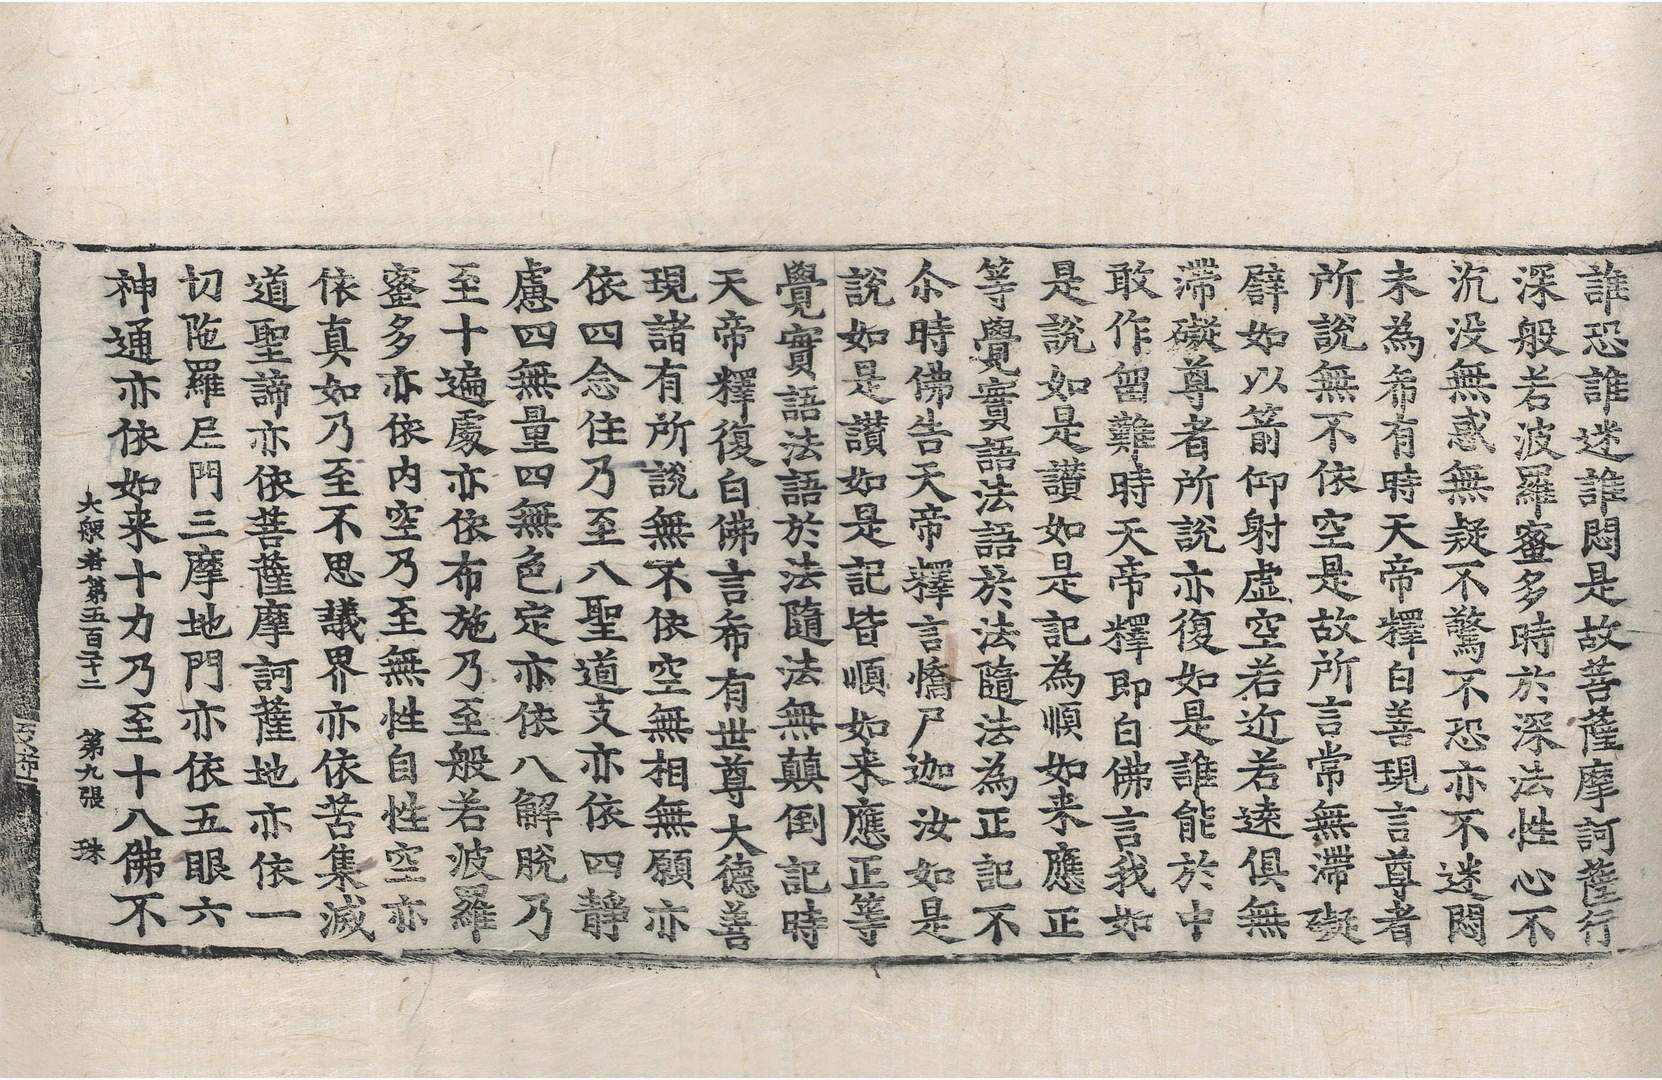 誰恐誰迷誰悶是故菩薩摩訶薩行
深般若波羅蜜多時於深法性心不
沉没無惑無疑不驚不恐亦不迷悶
未為希有時天帝釋白善現言尊者
所說無不依空是故所言常無滯礙
譬如以箭仰射虚空若近若遠俱無
滯礙尊者所說亦復如是誰能於中
敢作留難時天帝釋即白佛言我如
是說如是讃如是記為順如来應正
等覺實語法語於法隨法為正記不
尒時佛告天帝釋言憍尸迦汝如是
說如是讃如是記皆順如来應正等
覺實語法語於法隨法無顛倒記時
天帝釋復白佛言希有世尊大德善
現諸有所說無不依空無相無願亦
依四念住乃至八聖道支亦依四靜
慮四無量四無色定亦依八解脫乃
至十遍處亦依布施乃至般若波羅
蜜多亦依内空乃至無性自性空亦
依真如乃至不思議界亦依苦集滅
道聖諦亦依菩薩摩訶薩地亦依一
切陁羅尼門三摩地門亦依五眼六
神通亦依如来十力乃至十八佛不
大般若第五百二十二 第九張 珠